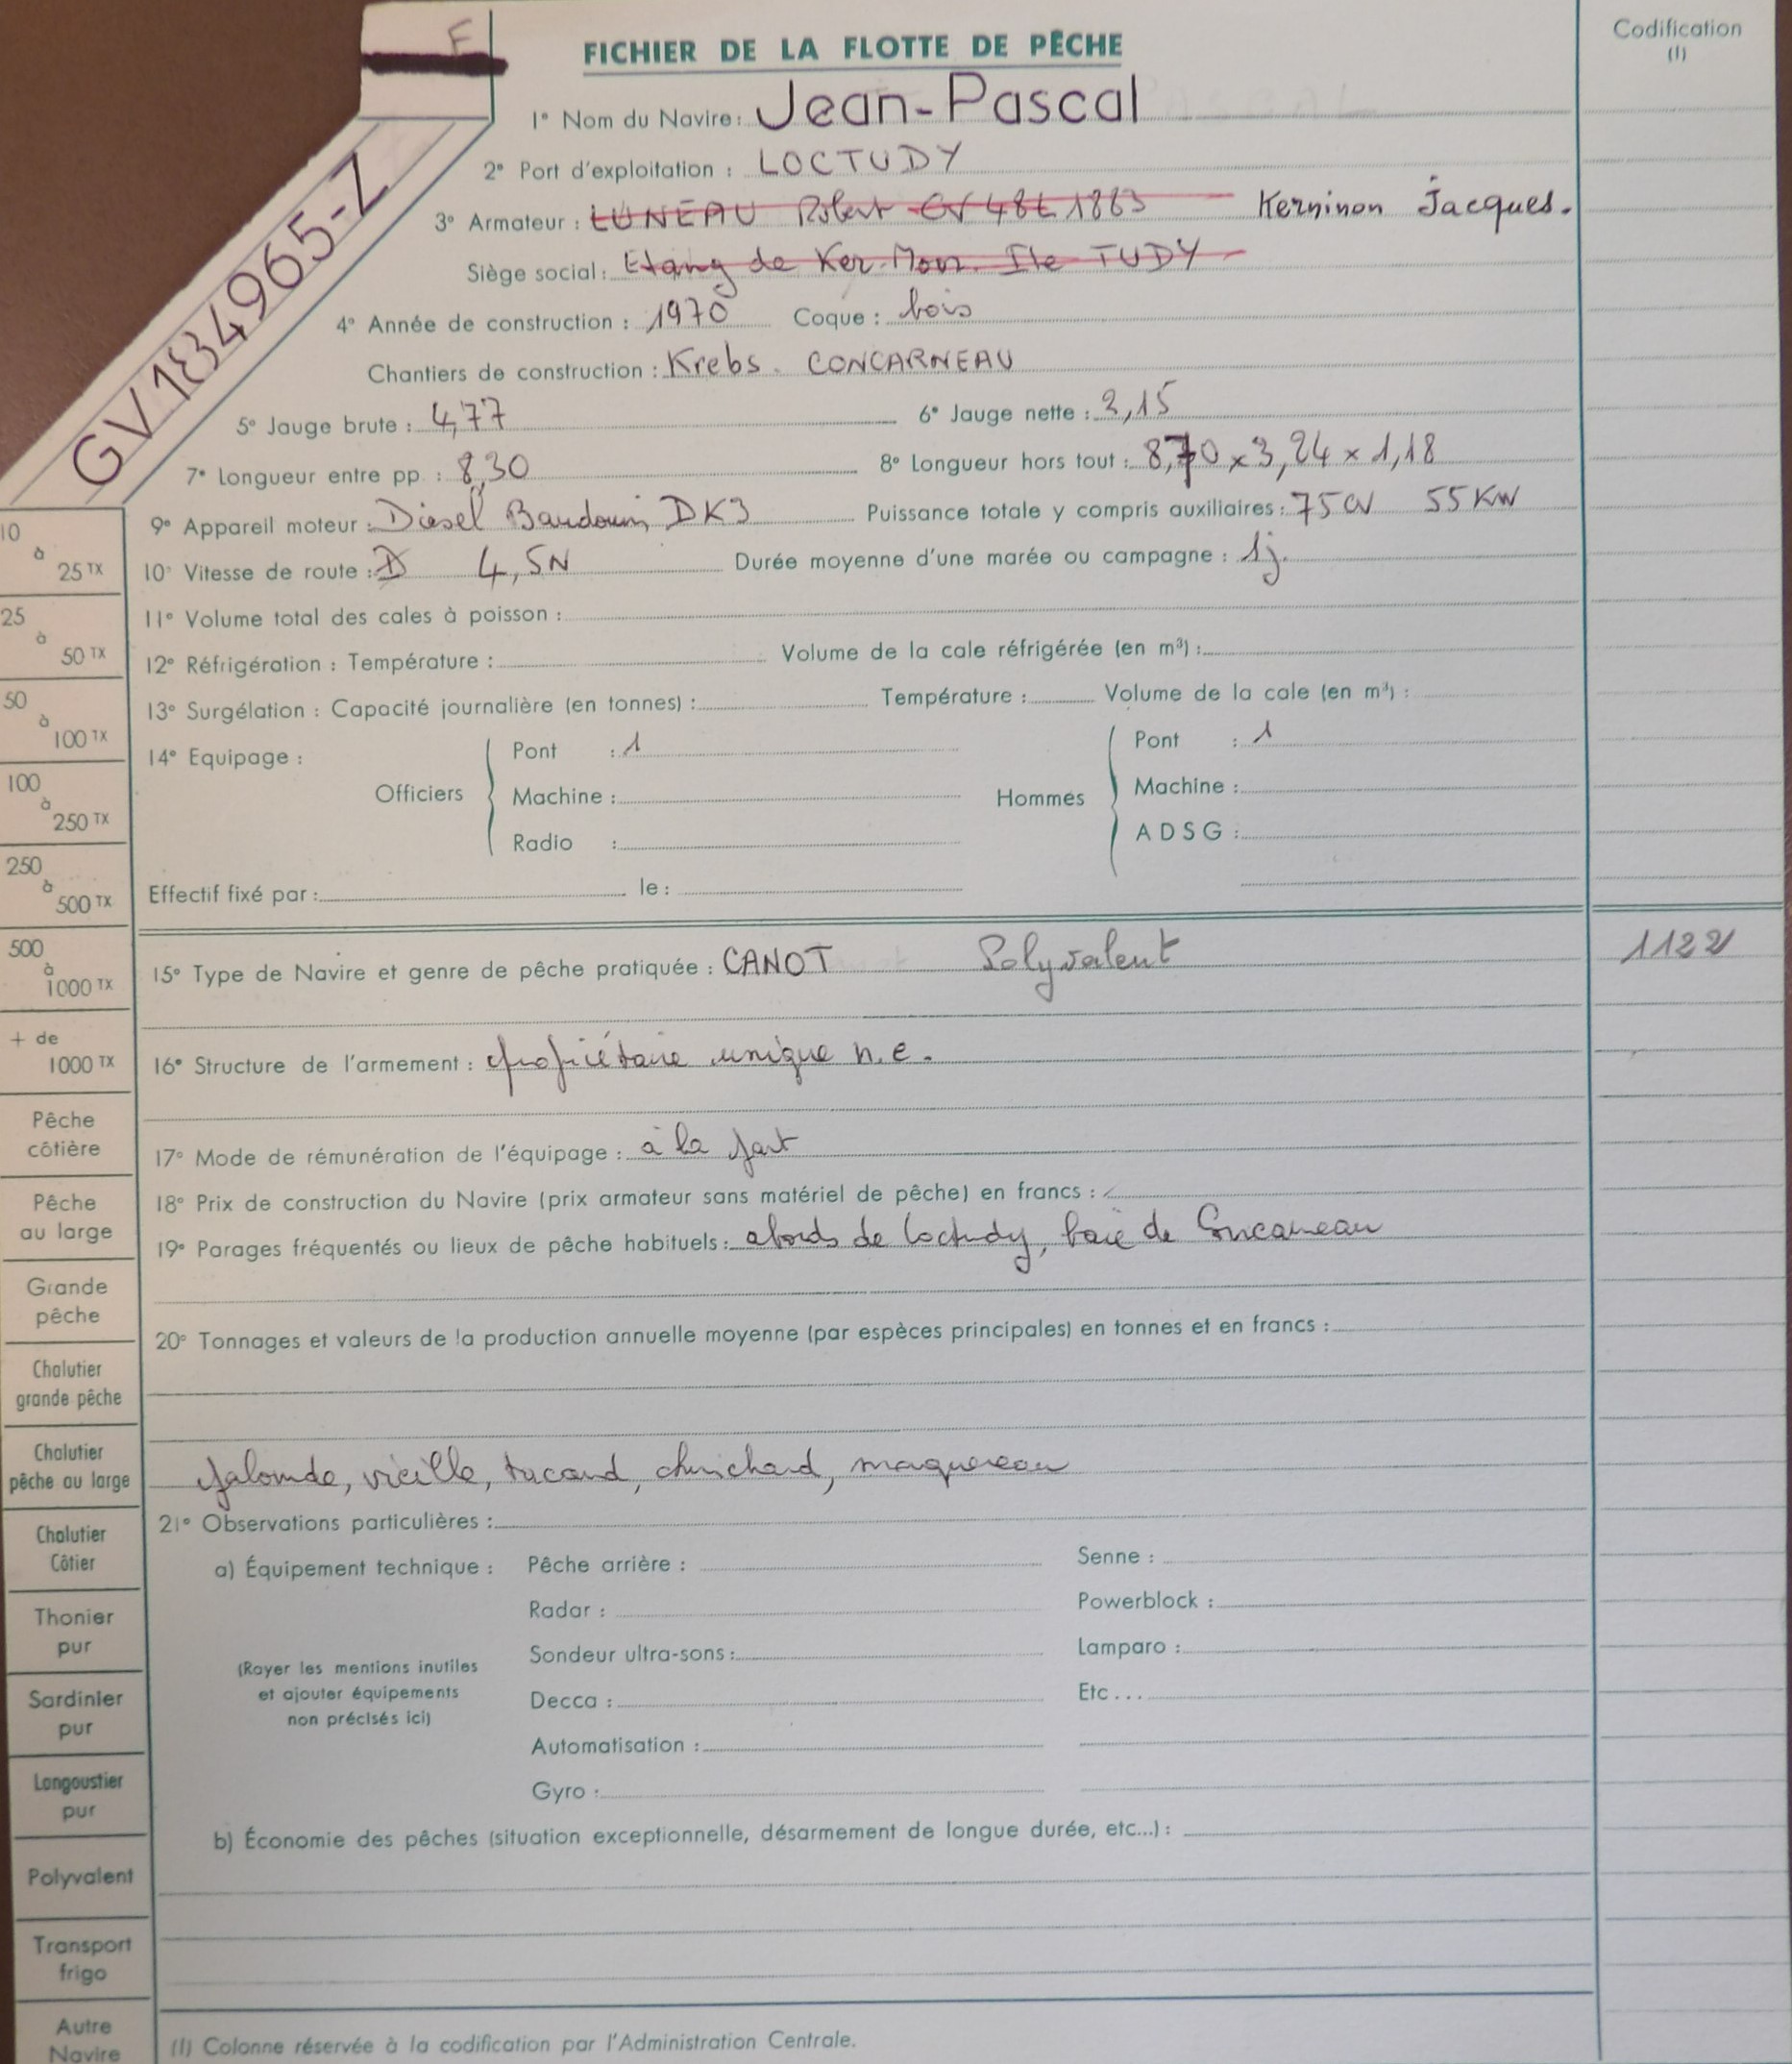 F
FICHIER DE LA FLOTTE DE PÊCHE
Codification
(1)
GV 184965-Z
1° Nom du Navire : Jean-Pascal
2° Port d'exploitation : LOCTUDY
3° Armateur : LUNEAU Robert GV 48t 1863 Kerninon Jacques.
Siège social : Etang de Ker Mor. Ile TUDY
4° Année de construction : 1970 Coque : bois
Chantiers de construction : Krebs. CONCARNEAU
5° Jauge brute : 4,77 6° Jauge nette : 3,15
7° Longueur entre pp. : 8,30 8° Longueur hors tout : 8,70 x 3,24 x 1,18
9° Appareil moteur : Diesel Baudouin DK3 Puissance totale y compris auxiliaires : 75 CV 55 KW
10° Vitesse de route : D 4,5N Durée moyenne d'une marée ou campagne : 1j.
11° Volume total des cales à poisson :
12° Réfrigération : Température : Volume de la cale réfrigérée (en m³) :
13° Surgélation : Capacité journalière (en tonnes) : Température : Volume de la cale (en m³) :
14° Equipage :
Officiers
Pont : 1
Machine :
Radio :
Hommes
Pont : 1
Machine :
A D S G :
Effectif fixé par : le :
15° Type de Navire et genre de pêche pratiquée : CANOT Polyvalent 1122
16° Structure de l'armement : propriétaire unique n.e.
17° Mode de rémunération de l'équipage : à la part
18° Prix de construction du Navire (prix armateur sans matériel de pêche) en francs :
19° Parages fréquentés ou lieux de pêche habituels : abords de Loctudy, baie de Concarneau
20° Tonnages et valeurs de la production annuelle moyenne (par espèces principales) en tonnes et en francs :
palourde, vieille, tacaud, chinchard, maquereau
21° Observations particulières :
a) Équipement technique : Pêche arrière : Senne :
Radar : Powerblock :
(Rayer les mentions inutiles
et ajouter équipements
non précisés ici)
Sondeur ultra-sons : Lamparo :
Decca : Etc...
Automatisation :
Gyro :
b) Économie des pêches (situation exceptionnelle, désarmement de longue durée, etc...) :
(1) Colonne réservée à la codification par l'Administration Centrale.
10
à
25 TX
25
à
50 TX
50
à
100 TX
100
à
250 TX
250
à
500 TX
500
à
1000 TX
+ de
1000 TX
Pêche
côtière
Pêche
au large
Grande
pêche
Chalutier
grande pêche
Chalutier
pêche au large
Chalutier
Côtier
Thonier
pur
Sardinier
pur
Langoustier
pur
Polyvalent
Transport
frigo
Autre
Navire